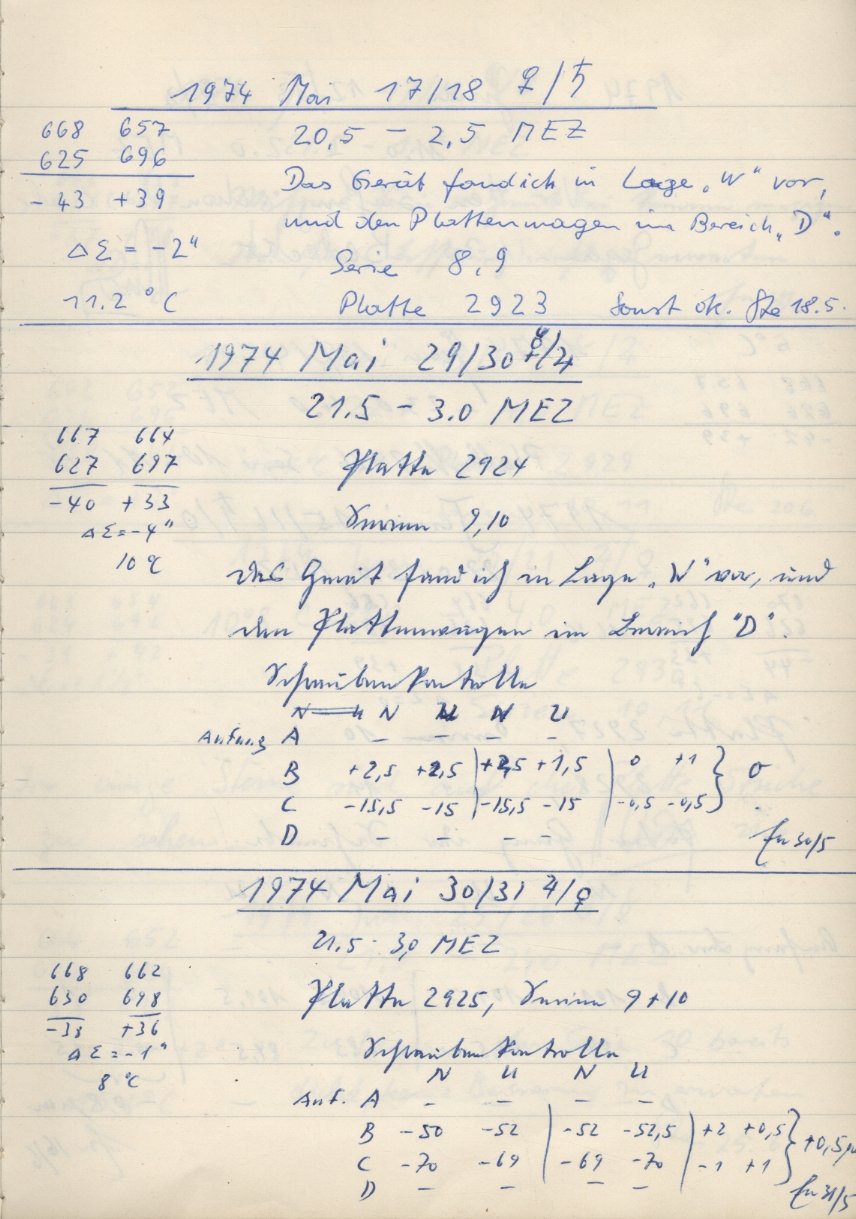 1974 Mai 17/18 ♀/♄
668 657 20,5 – 2,5 MEZ
625 696
-43 +39 Das Gerät fand ich in Lage „W“ vor,
und den Plattenwagen im Bereich „D“.
ΔΣ = -2"
Serie 8,9
11.2 °C Platte 2923 Sonst ok. 18.5.
1974 Mai 29/30 ☿/♃
21.5 – 3.0 MEZ
667 664
627 697 Platte 2924
-40 +33
Serien 9,10
ΔΣ = -4"
10 °C
das Gerät fand ich in Lage „W“ vor, und
den Plattenwagen im Bereich "D".
Schraubenkontrolle
N U N U
Anfang A – – – –
B +2,5 +2,5 | +2,5 +1,5 | 0 +1 } 0
C -15,5 -15 | -15,5 -15 | -0,5 -0,5
D – – – –
30/5
1974 Mai 30/31 ♃/♀
21.5 - 3,0 MEZ
668 662
630 698 Platte 2925, Serien 9+10
-38 +36
ΔΣ = -1" Schraubenkontrolle
8 °C
N U N U
Anf. A – – – –
B -50 -52 | -52 -52,5 | +2 +0,5 } +0,5μ
C -70 -69 | -69 -70 | -1 +1
D – – – –
31/5